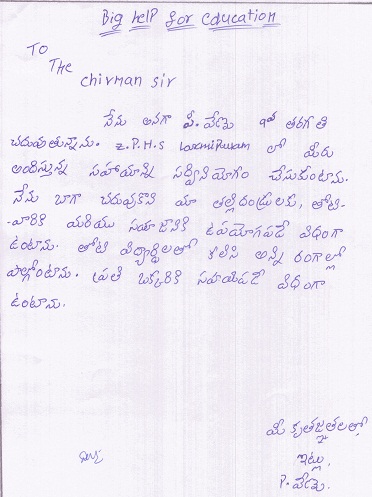 Big help for education
TO
The
chirman sir
నేను అనగా పి. వేమై 9వ తరగతి
చదువుతున్నాను. Z.P.H.S Laxmipuram లో మీరు
అందిస్తున్న సహాయాన్ని సద్వినియోగం చేసుకుంటాను.
నేను బాగా చదువుకొని మా తల్లిదండ్రులకు, తోటి-
-వారికి మరియు సమాజానికి ఉపయోగపడే విధంగా
ఉంటాను. తోటి విద్యార్థులతో కలిసి అన్ని రంగాల్లో
పాల్గొంటాను. ప్రతి ఒక్కరికి సహాయపడే విధంగా
ఉంటాను.
మీ కృతజ్ఞతలతో,
ఇట్లు,
P. వేమై.